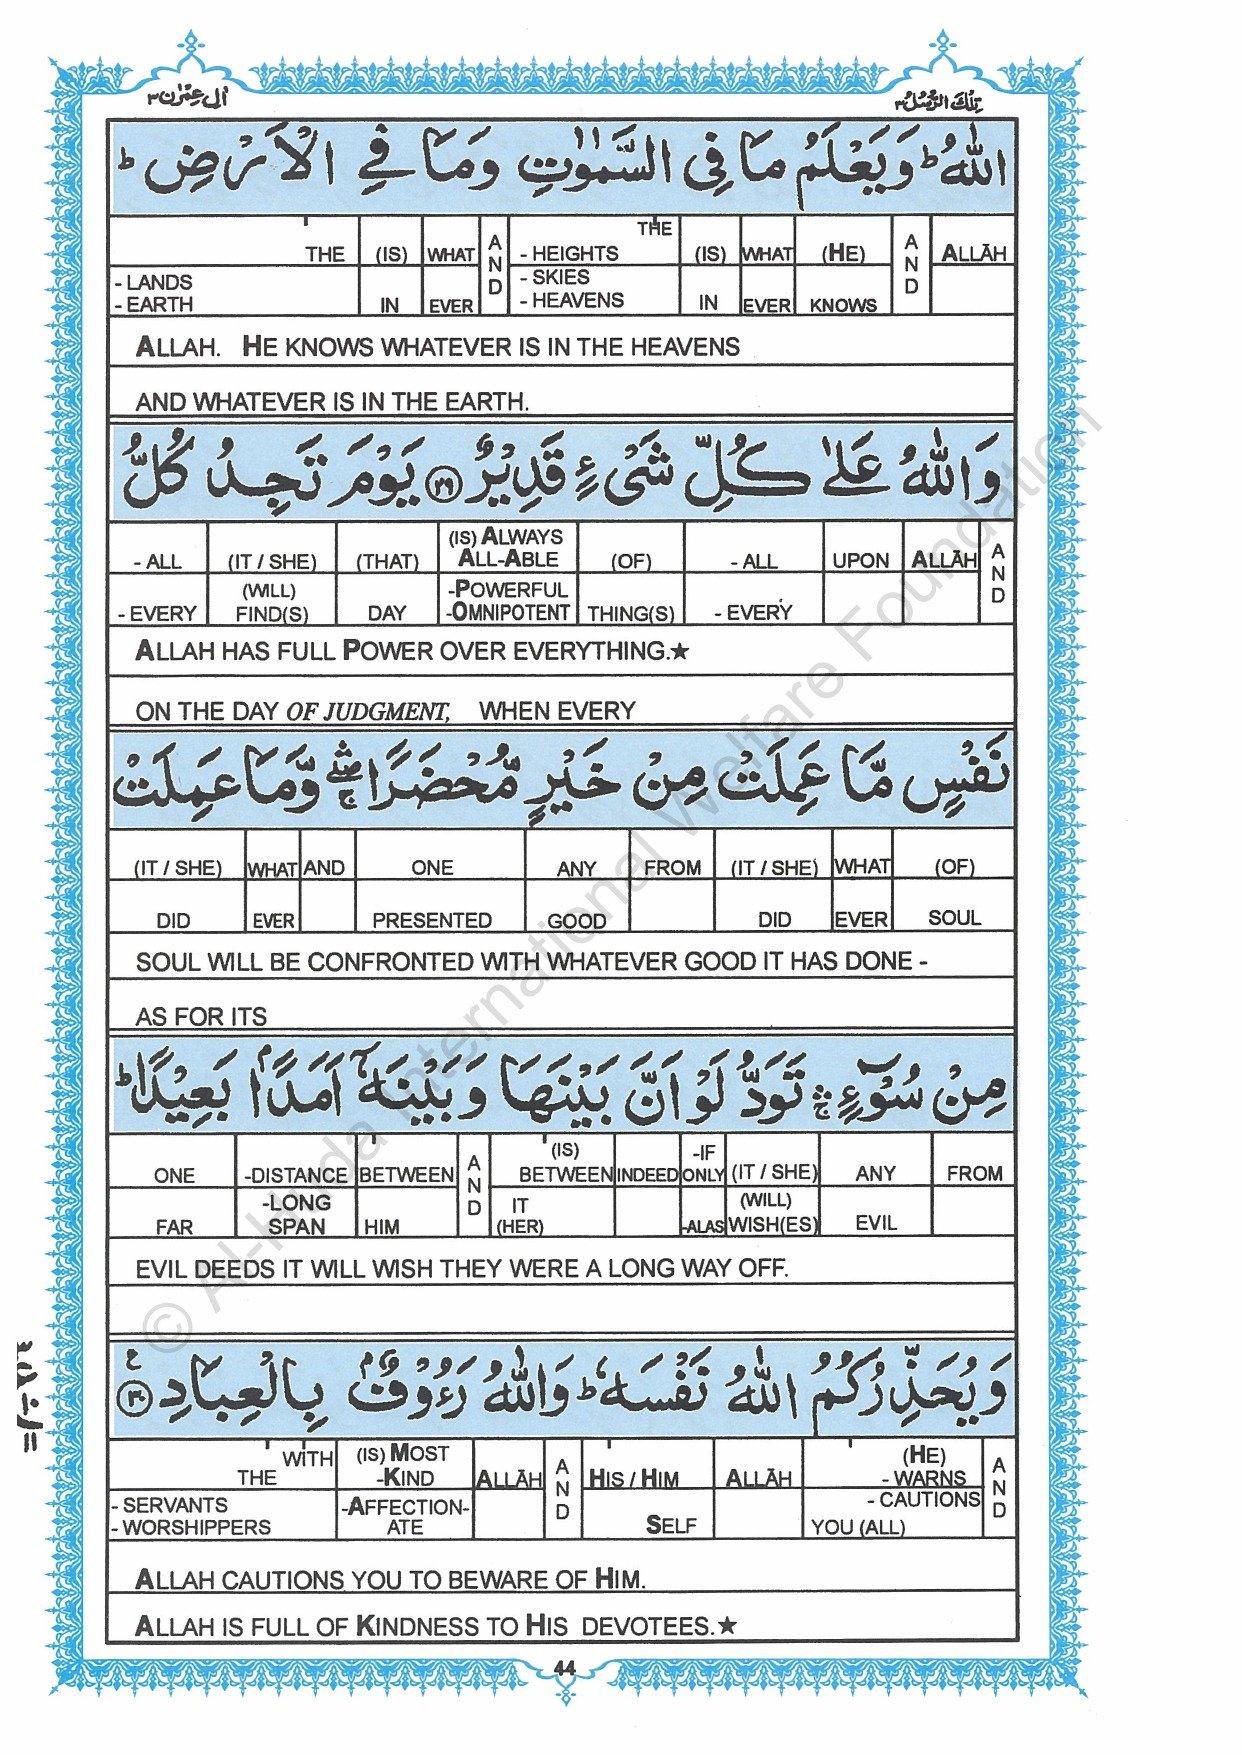 اٰلِ عِمْرٰن ٣
تِلْكَ الرُّسُلُ ٣
اللّٰهُ ؕ وَيَعْلَمُ مَا فِى السَّمٰوٰتِ وَمَا فِى الْاَرْضِ ؕ
THE (IS) WHAT AND - HEIGHTS THE (IS) WHAT (HE) AND ALLĀH
- LANDS - SKIES
- EARTH IN EVER - HEAVENS IN EVER KNOWS
ALLAH. HE KNOWS WHATEVER IS IN THE HEAVENS
AND WHATEVER IS IN THE EARTH.
وَاللّٰهُ عَلٰى كُلِّ شَىْءٍ قَدِيْرٌ ﴿۲۹﴾ يَوْمَ تَجِدُ كُلُّ
- ALL (IT / SHE) (THAT) (IS) ALWAYS ALL-ABLE (OF) - ALL UPON ALLĀH AND
- EVERY (WILL) FIND(S) DAY -POWERFUL -OMNIPOTENT THING(S) - EVERY
ALLAH HAS FULL POWER OVER EVERYTHING.★
ON THE DAY OF JUDGMENT, WHEN EVERY
نَفْسٍ مَّا عَمِلَتْ مِنْ خَيْرٍ مُّحْضَرًا ۛۖۚ وَّمَا عَمِلَتْ
(IT / SHE) WHAT AND ONE ANY FROM (IT / SHE) WHAT (OF)
DID EVER PRESENTED GOOD DID EVER SOUL
SOUL WILL BE CONFRONTED WITH WHATEVER GOOD IT HAS DONE -
AS FOR ITS
مِنْ سُوْٓءٍ ۛۚ تَوَدُّ لَوْ اَنَّ بَيْنَهَا وَبَيْنَهٗۤ اَمَدًاۢ بَعِيْدًا ؕ
ONE -DISTANCE BETWEEN AND (IS) BETWEEN INDEED -IF ONLY (IT / SHE) ANY FROM
FAR -LONG SPAN HIM IT (HER) -ALAS (WILL) WISH(ES) EVIL
EVIL DEEDS IT WILL WISH THEY WERE A LONG WAY OFF.
وَيُحَذِّرُكُمُ اللّٰهُ نَفْسَهٗ ؕ وَاللّٰهُ رَءُوْفٌۢ بِالْعِبَادِ ﴿۳۰﴾ ع
WITH THE (IS) MOST -KIND ALLĀH AND HIS / HIM ALLĀH (HE) - WARNS AND
- SERVANTS - WORSHIPPERS -AFFECTION- ATE SELF - CAUTIONS YOU (ALL)
ALLAH CAUTIONS YOU TO BEWARE OF HIM.
ALLAH IS FULL OF KINDNESS TO HIS DEVOTEES.★
44
© Al-Huda International Welfare Foundation